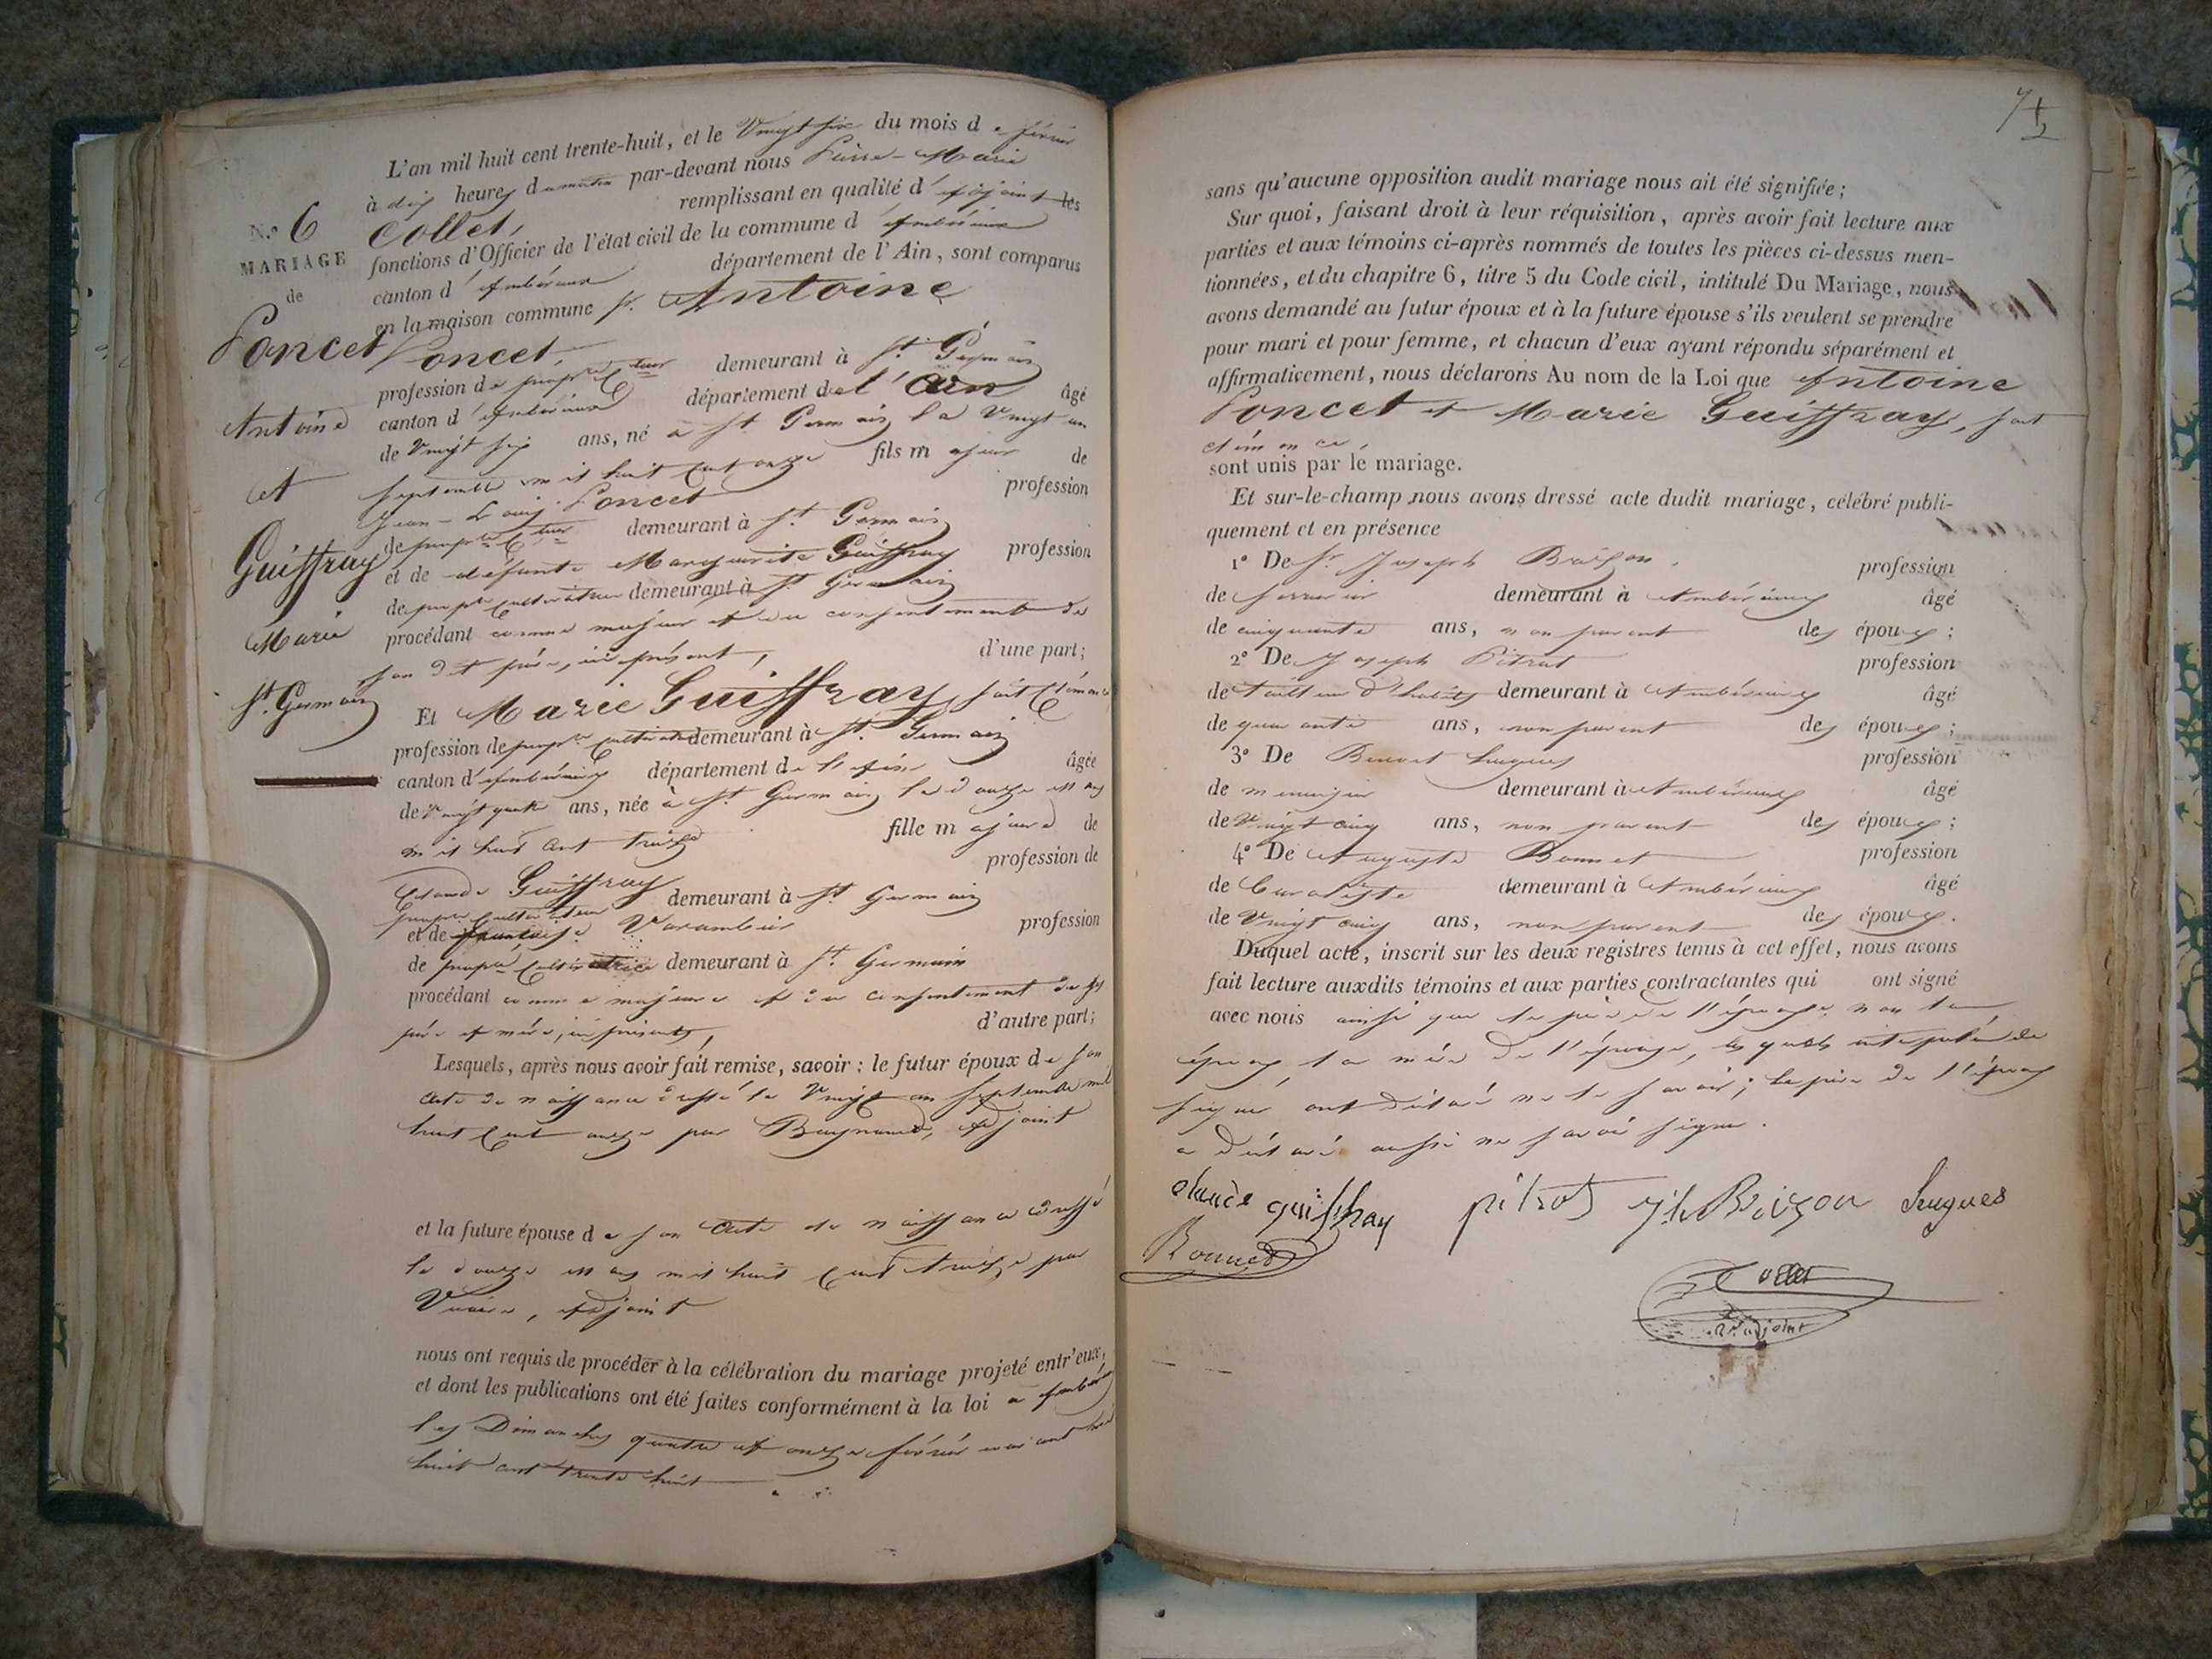 L'an mil huit cent trente-huit, et le Vingt six du mois de février
à dix heures du matin par-devant nous Pierre-Marie
Collet, remplissant en qualité d'adjoint les
fonctions d'Officier de l'état civil de la commune d'Ambérieux
canton d'Ambérieux département de l'Ain, sont comparus
en la maison commune sr. Antoine
Poncet,
profession de propre. Cteur demeurant à St. Germain
canton d'Ambérieux département de l'Ain âgé
de Vingt six ans, né à St Germain le Vingt un
Septembre mil huit cent onze fils majeur de
Jean-Louis Poncet profession
de propre. Cteur demeurant à St. Germain
et de défunte Marguerite Guiffray profession
de propre. cultivatrice demeurant à St. Germain
procédant comme majeur et du consentement de
son dit père, ici présent, d'une part;
N.o 6
MARIAGE
de
Poncet
Antoine
et
Guiffray
Marie
St. Germain
Et Marie Guiffray, soit Clémence
profession de propre. cultivatrice demeurant à St. Germain
canton d'Ambérieux département de l'Ain âgée
de Vingt quatre ans, née à St. Germain le douze mars
mil huit cent treize fille majeure de
Claude Guiffray profession de
propre. Cultivateur demeurant à St Germain
et de Varambier profession
de propre. Cultivatrice demeurant à St. Germain
procédant comme majeure et du consentement de ses
père et mère, ici présents, d'autre part;
Lesquels, après nous avoir fait remise, savoir: le futur époux de son
acte de naissance dressé le Vingt un Septembre mil
huit Cent onze par Baynand, Adjoint
et la future épouse de son acte de naissance dressé
le douze mars mil huit Cent treize par
adjoint
nous ont requis de procéder à la célébration du mariage projeté entr'eux,
et dont les publications ont été faites conformément à la loi à Ambérieux
les Dimanches quatre et onze février courant mil
huit cent trente huit
sans qu'aucune opposition audit mariage nous ait été signifiée;
Sur quoi, faisant droit à leur réquisition, après avoir fait lecture aux
parties et aux témoins ci-après nommés de toutes les pièces ci-dessus men-
tionnées, et du chapitre 6, titre 5 du Code civil, intitulé Du Mariage, nous
avons demandé au futur époux et à la future épouse s'ils veulent se prendre
pour mari et pour femme, et chacun d'eux ayant répondu séparément et
affirmativement, nous déclarons Au nom de la Loi que Antoine
Poncet et Marie Guiffray, soit
clémence,
sont unis par le mariage.
Et sur-le-champ nous avons dressé acte dudit mariage, célébré publi-
quement et en présence
1o De Sr. Joseph Brizon, profession
de serrurier demeurant à Ambérieux âgé
de cinquante ans, non parent des époux;
2o De Joseph Pitrat profession
de tailleur d'habits demeurant à Ambérieux âgé
de quarante ans, non parent des époux;
3o De Benoit Sugues profession
de menuisier demeurant à Ambérieux âgé
de Vingt cinq ans, non parent des époux;
4o De Auguste Bonnet profession
de demeurant à Ambérieux âgé
de Vingt cinq ans, non parent des époux.
Duquel acte, inscrit sur les deux registres tenus à cet effet, nous avons
fait lecture auxdits témoins et aux parties contractantes qui ont signé
avec nous ainsi que le père de l'épouse, non les
époux, la mère de l'épouse, lesquels interpelés de
signer, ont déclaré ne le savoir; le père de l'époux
a déclaré aussi ne savoir signer.
claude guiffray pitrat Jh Brizon Sugues
Bonnet
Collet
adjoint